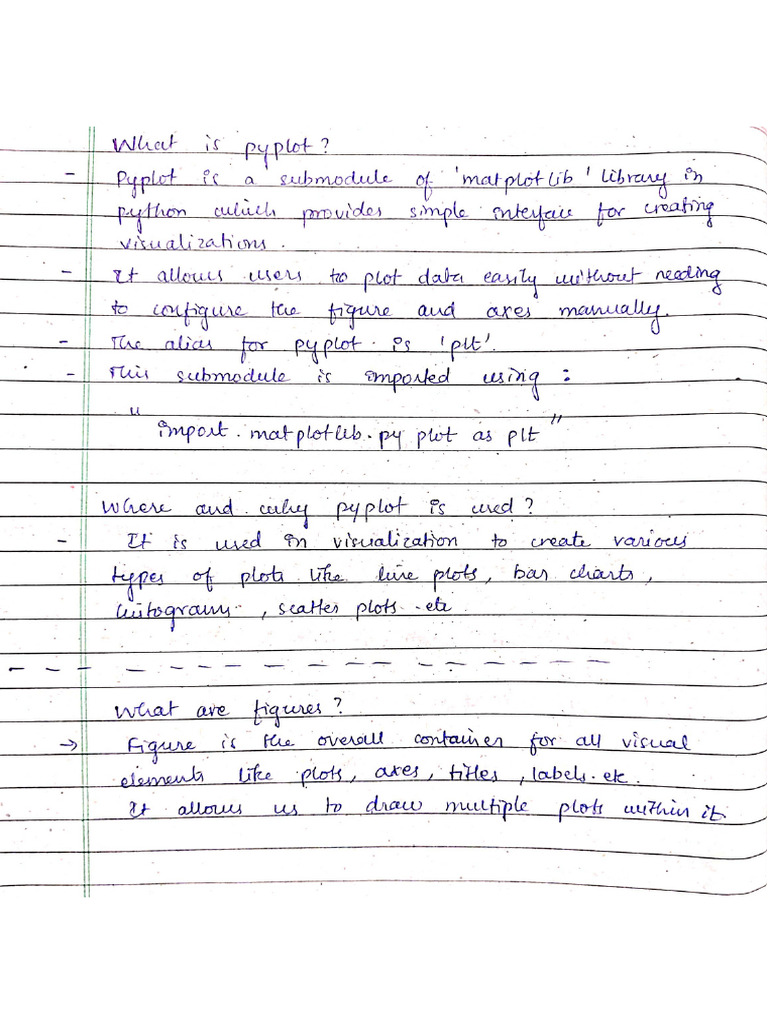 What is pyplot?
- Pyplot is a submodule of 'matplotlib' library in
python which provides simple interface for creating
visualizations.
- It allows users to plot data easily without needing
to configure the figure and axes manually.
- The alias for pyplot is 'plt'.
- This submodule is imported using :
"import matplotlib.pyplot as plt"
Where and why pyplot is used?
- It is used in visualization to create various
types of plots like line plots, bar charts,
histograms, scatter plots etc
What are figures?
→ Figure is the overall container for all visual
elements like plots, axes, titles, labels etc.
It allows us to draw multiple plots within it